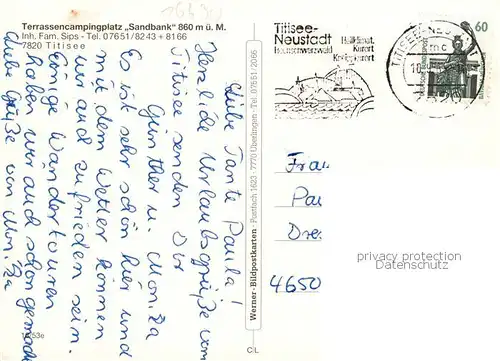 Terrassencampingplatz „Sandbank" 860 m ü. M.
Inh. Fam. Sips - Tel. 07651/8243 + 8166
7820 Titisee
Liebe Tante Paula!
Herzliche Urlaubsgrüße vom
Titisee senden Dir
Günther u. Monika
Es ist sehr schön hier und
mit dem Wetter können
wir auch zufrieden sein.
Einige Wandertouren
haben wir auch schon gemacht
Liebe Grüße von
Werner-Bildpostkarten · Postfach 1623 · 7770 Überlingen · Tel. 07551/2066
C/L
Titisee-
Neustadt
Hochschwarzwald
Heilklimat.
Kurort
Kneippkurort
TITISEE-NEUST
mc
60
Frau
Pau
Dre
4650
privacy protection
Datenschutz